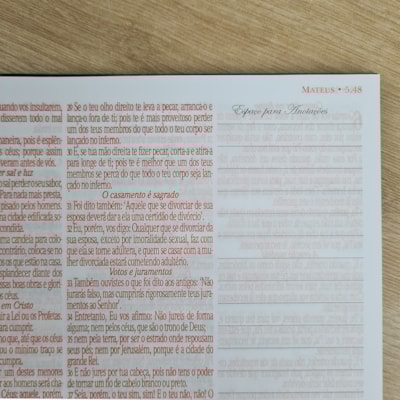 MATEUS • 5.48
Espaço para Anotações
quando vos insultarem,
disserem todo o mal
maneira, pois é esplên-
céus; porque assim
viveram antes de vós.
er sal e luz
sal perder o seu sabor,
Para nada mais presta,
pisado pelos homens
na cidade edificada so-
condida.
uma candeia para colo-
ontrário, coloca-se no
os que estão na casa.
splandecer diante dos
as boas obras e glori-
s céus.
em Cristo
ir a Lei ou os Profetas.
ra cumprir.
o que, até que os céus
ou o mínimo traço se
cumpra.
r um destes menores
r aos homens será cha-
éus; aquele, porém,
29 Se o teu olho direito te leva a pecar, arranca-o e
lança-o fora de ti; pois te é mais proveitoso perder
um dos teus membros do que todo o teu corpo ser
lançado no inferno.
30 E, se tua mão direita te fizer pecar, corta-a e atira-a
para longe de ti; pois te é melhor que um dos teus
membros se perca do que todo o teu corpo seja lan-
çado no inferno.
O casamento é sagrado
31 Foi dito também: ‘Aquele que se divorciar de sua
esposa deverá dar a ela uma certidão de divórcio’.
32 Eu, porém, vos digo: Qualquer que se divorciar da
sua esposa, exceto por imoralidade sexual, faz com
que ela se torne adúltera, e quem se casar com a mu-
lher divorciada estará cometendo adultério.
Votos e juramentos
33 Também ouvistes o que foi dito aos antigos: ‘Não
jurarás falso, mas cumprirás rigorosamente teus jura-
mentos ao Senhor’.
34 Entretanto, Eu vos afirmo: Não jureis de forma
alguma; nem pelos céus, que são o trono de Deus;
35 nem pela terra, por ser o estrado onde repousam
seus pés; nem por Jerusalém, porque é a cidade do
grande Rei.
36 E não jures por tua cabeça, pois não tens o poder
de tornar um fio de cabelo branco ou preto.
37 Seja, porém, o teu sim, sim! E o teu não, não! O